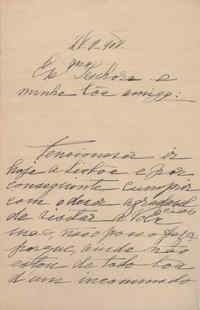 Ex.ma Senhora e
minha boa amiga:
Tencionava ir
hoje a Lisboa e por
conseguinte cumprir
com o dever agradavel
de visitar a V. Ex.
mas, não posso
porque, ainda não
estou de todo boa
d'um incommodo